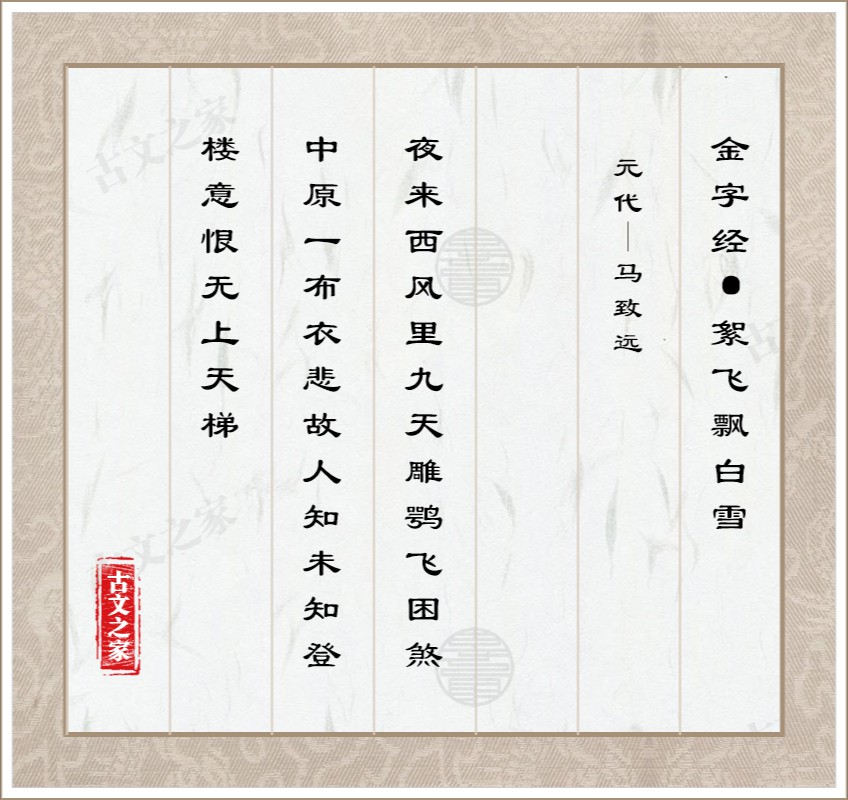 金字经●絮飞飘白雪
元代—马致远
夜来西风里九天雕鹗飞困煞
中原一布衣悲故人知未知登
楼意恨无上天梯
古文之家
古文之家
古文之家